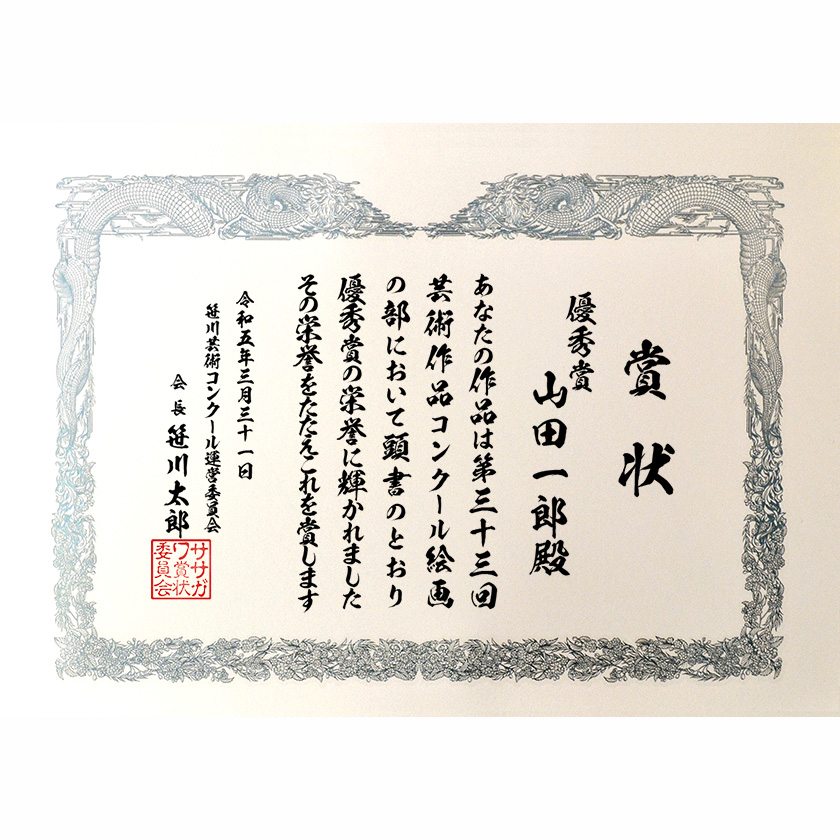 賞状
優秀賞
山田一郎殿
あなたの作品は第三十三回
芸術作品コンクール絵画
の部において頭書のとおり
優秀賞の栄誉に輝かれました
その栄誉をたたえこれを賞します
令和五年三月三十一日
笹川芸術コンクール運営委員会
会長 笹川太郎
ササガ
ワ賞状
委員会